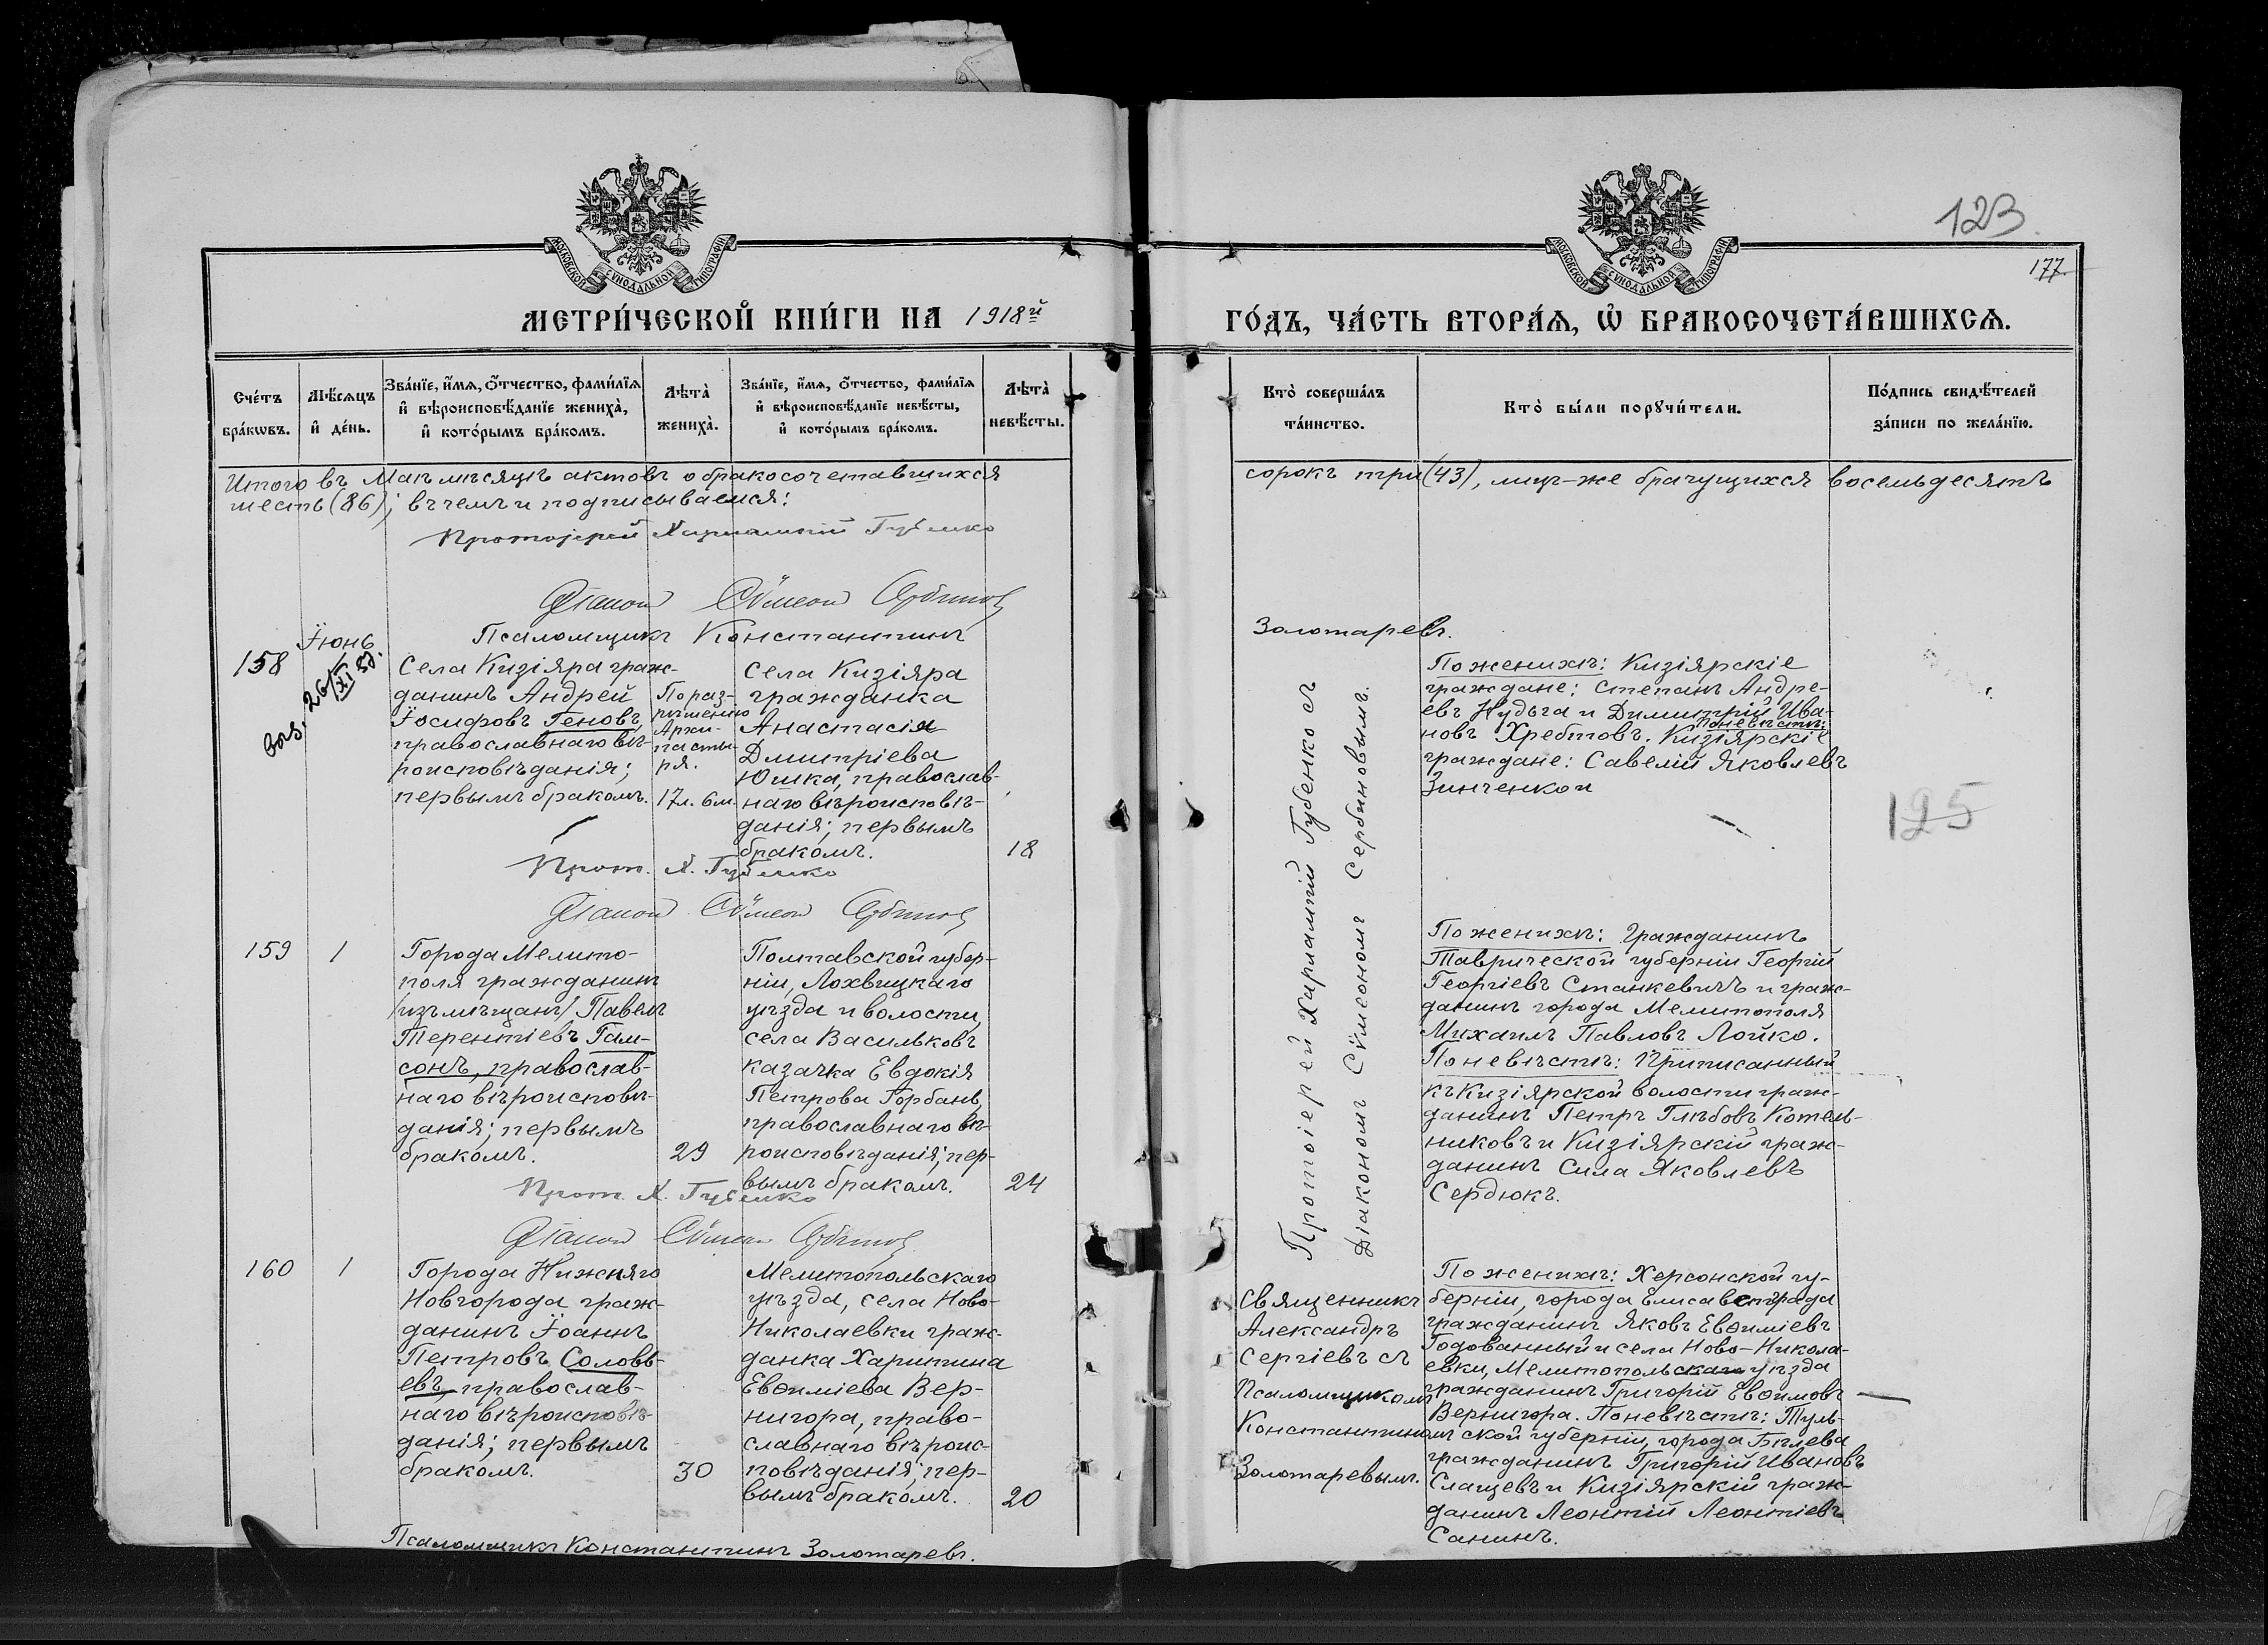 123
177.
МОСКОВСКОЙ СѴНОДАЛЬНОЙ ТИПОГРАФІИ
МОСКОВСКОЙ СѴНОДАЛЬНОЙ ТИПОГРАФІИ
МЕТРИ́ЧЕСКОЙ КНИ́ГИ НА 1918й
ГО́ДЪ, ЧА́СТЬ ВТОРА́Ѧ, Ѡ҆ БРАКОСОЧЕТА́ВШИХСѦ.
Сче́тъ
бра́кѡвъ.
Мѣ́сѧцъ
и҆ де́нь.
Зва́нїе, и҆́мѧ, о҆́тчество, фами́лїѧ
и҆ вѣроисповѣ́данїе жениха̀,
и҆ кото́рымъ бра́комъ.
Лѣта̀
жениха̀.
Зва́нїе, и҆́мѧ, о҆́тчество, фами́лїѧ
и҆ вѣроисповѣ́данїе невѣ́сты,
и҆ кото́рымъ бра́комъ.
Лѣта̀
невѣ́сты.
Кто̀ соверша́лъ
та́инство.
Кто̀ бы́ли порꙋчи́тели.
По́дпись свидѣ́телей
за́писи по жела́нїю.
Итого въ Маѣ мѣсяцѣ актовъ о бракосочетавшихся
сорокъ три (43), лицъ-же брачущихся восемьдесятъ
шесть (86); въ чемъ и подписываемся:
Протоіерей Харлампій Губенко
Діаконъ Сѵмеонъ Сербиновъ
Псаломщикъ Константинъ
Золотаревъ.
158
Іюнь
26/XI
Села Кизіяра граж-
данинъ Андрей
Іосифовъ Геновъ,
православнаго вѣ-
роисповѣданія;
первымъ бракомъ.
По раз-
рѣшенію
Архи-
пасты-
ря.
17л. 6м.
Села Кизіяра
гражданка
Анастасія
Дмитріева
Юшка, православ-
наго вѣроисповѣ-
данія; первымъ
бракомъ.
18
Протоіерей Харлампій Губенко съ
Діакономъ Сѵмеономъ Сербиновымъ.
По женихѣ: Кизіярскіе
граждане: Степанъ Андре-
евъ Нудьга и Димитрій Ива-
новъ Хребтовъ. По невѣстѣ: Кизіярскіе
граждане: Савелій Яковлевъ
Зинченко и
125
Прот. Х. Губенко
Діаконъ Сѵмеонъ Сербиновъ
159
1
Города Мелито-
поля гражданинъ
/изъ мѣщанъ/ Павелъ
Терентіевъ Гам-
сонъ, православ-
наго вѣроисповѣ-
данія; первымъ
бракомъ.
29
Полтавской губер-
ніи, Лохвицкаго
уѣзда и волости,
села Васильковъ
казачка Евдокія
Петрова Горбань,
православнаго вѣ-
роисповѣданія; пер-
вымъ бракомъ.
24
По женихѣ: Гражданинъ
Таврической губерніи Георгій
Георгіевъ Станкевичъ и граж-
данинъ города Мелитополя
Михаилъ Павловъ Лойко.
По невѣстѣ: Приписанный
къ Кизіярской волости граж-
данинъ Петръ Глѣбовъ Котель-
никовъ и Кизіярскій граж-
данинъ Сила Яковлевъ
Сердюкъ.
Прот. Х. Губенко
Діаконъ Сѵмеонъ Сербиновъ
160
1
Города Нижняго
Новгорода граж-
данинъ Іоаннъ
Петровъ Соловь-
евъ, православ-
наго вѣроисповѣ-
данія; первымъ
бракомъ.
30
Мелитопольскаго
уѣзда, села Ново-
Николаевки граж-
данка Харитина
Евѳиміева Вер-
нигора, право-
славнаго вѣроис-
повѣданія; пер-
вымъ бракомъ.
20
Священникъ
Александръ
Сергіевъ съ
Псаломщикомъ
Константиномъ
Золотаревымъ.
По женихѣ: Херсонской гу-
берніи, города Елисаветграда
гражданинъ Яковъ Евѳиміевъ
Годованный и села Ново-Никола-
евки, Мелитопольскаго уѣзда
гражданинъ Григорій Евѳимовъ
Вернигора. По невѣстѣ: Туль-
ской губерніи, города Бѣлева
гражданинъ Григорій Ивановъ
Слащевъ и Кизіярскій граж-
данинъ Леонтій Леонтіевъ
Санинъ.
Псаломщикъ Константинъ Золотаревъ.